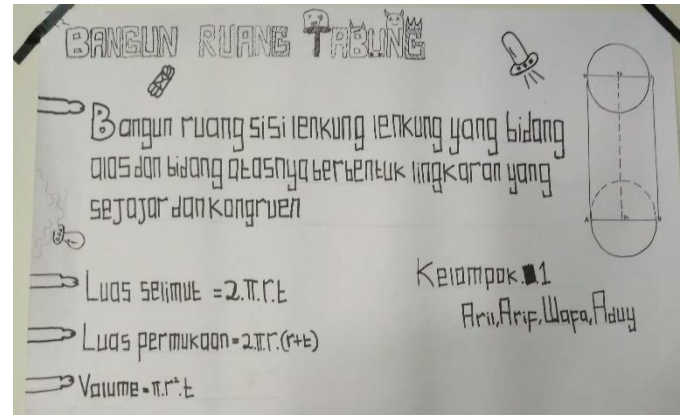 BANGUN RUANG TABUNG
Bangun ruang sisi lenkung lenkung yang bidang
alas dan bidang atasnya berbentuk lingkaran yang
sejajar dan kongruen
Luas selimut = 2.π.r.t
Luas permukaan = 2.π.r.(r+t)
Volume = π.r².t
Kelompok. 1
Arii, Arif, Wafa, Aduy